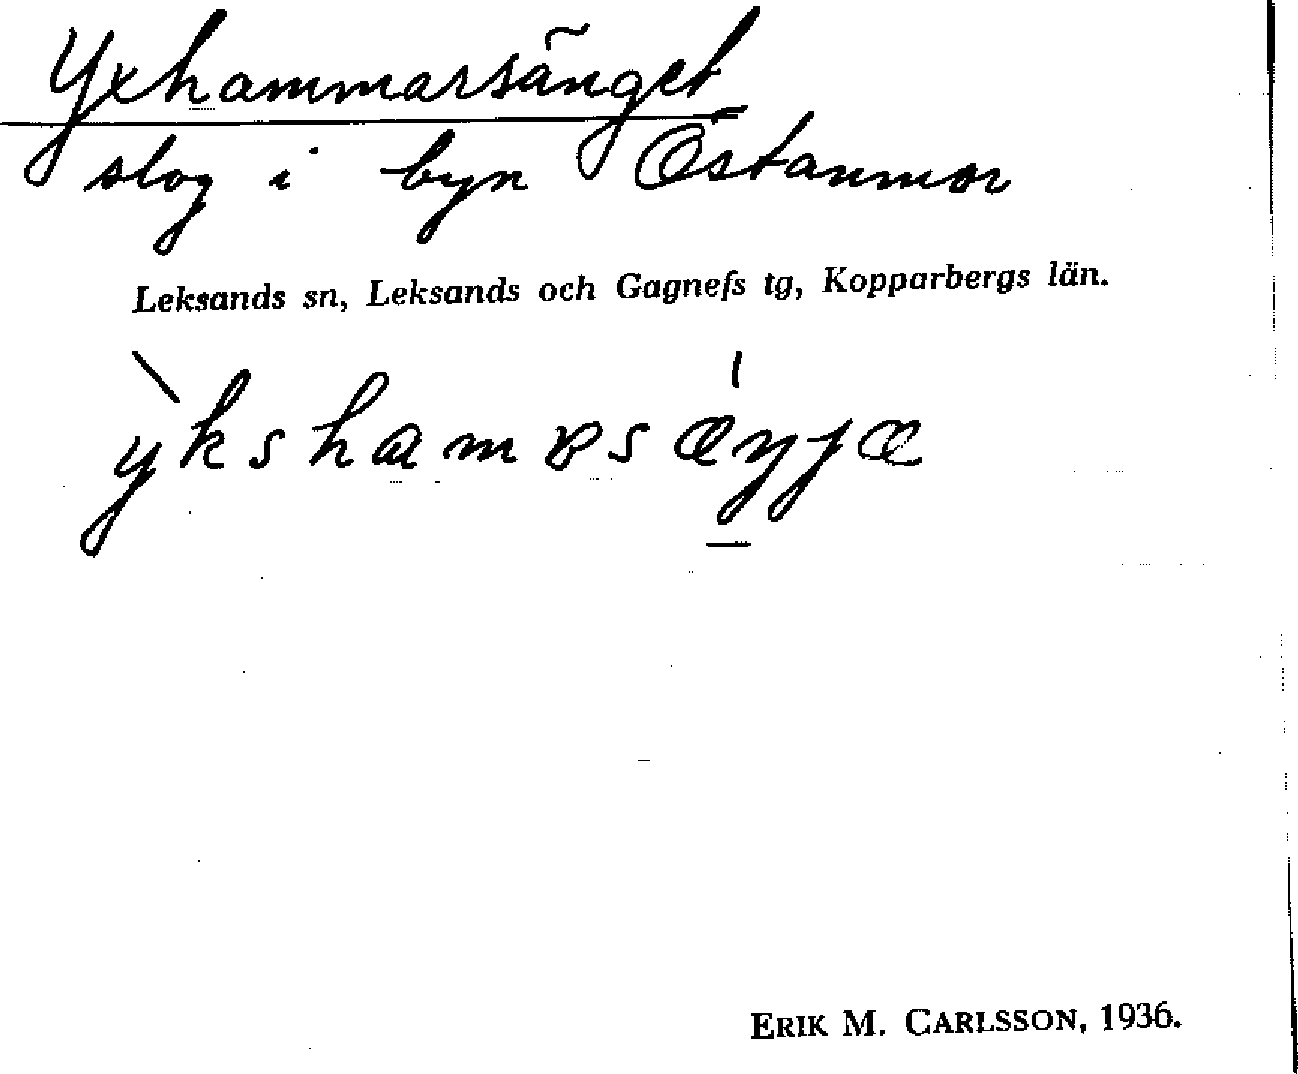 Yxhammarsänget
slog i byn Östanmor
Leksands sn, Leksands och Gagnefs tg, Kopparbergs län.
ỳkshamɒsǽŋjæ
ERIK M. CARLSSON, 1936.